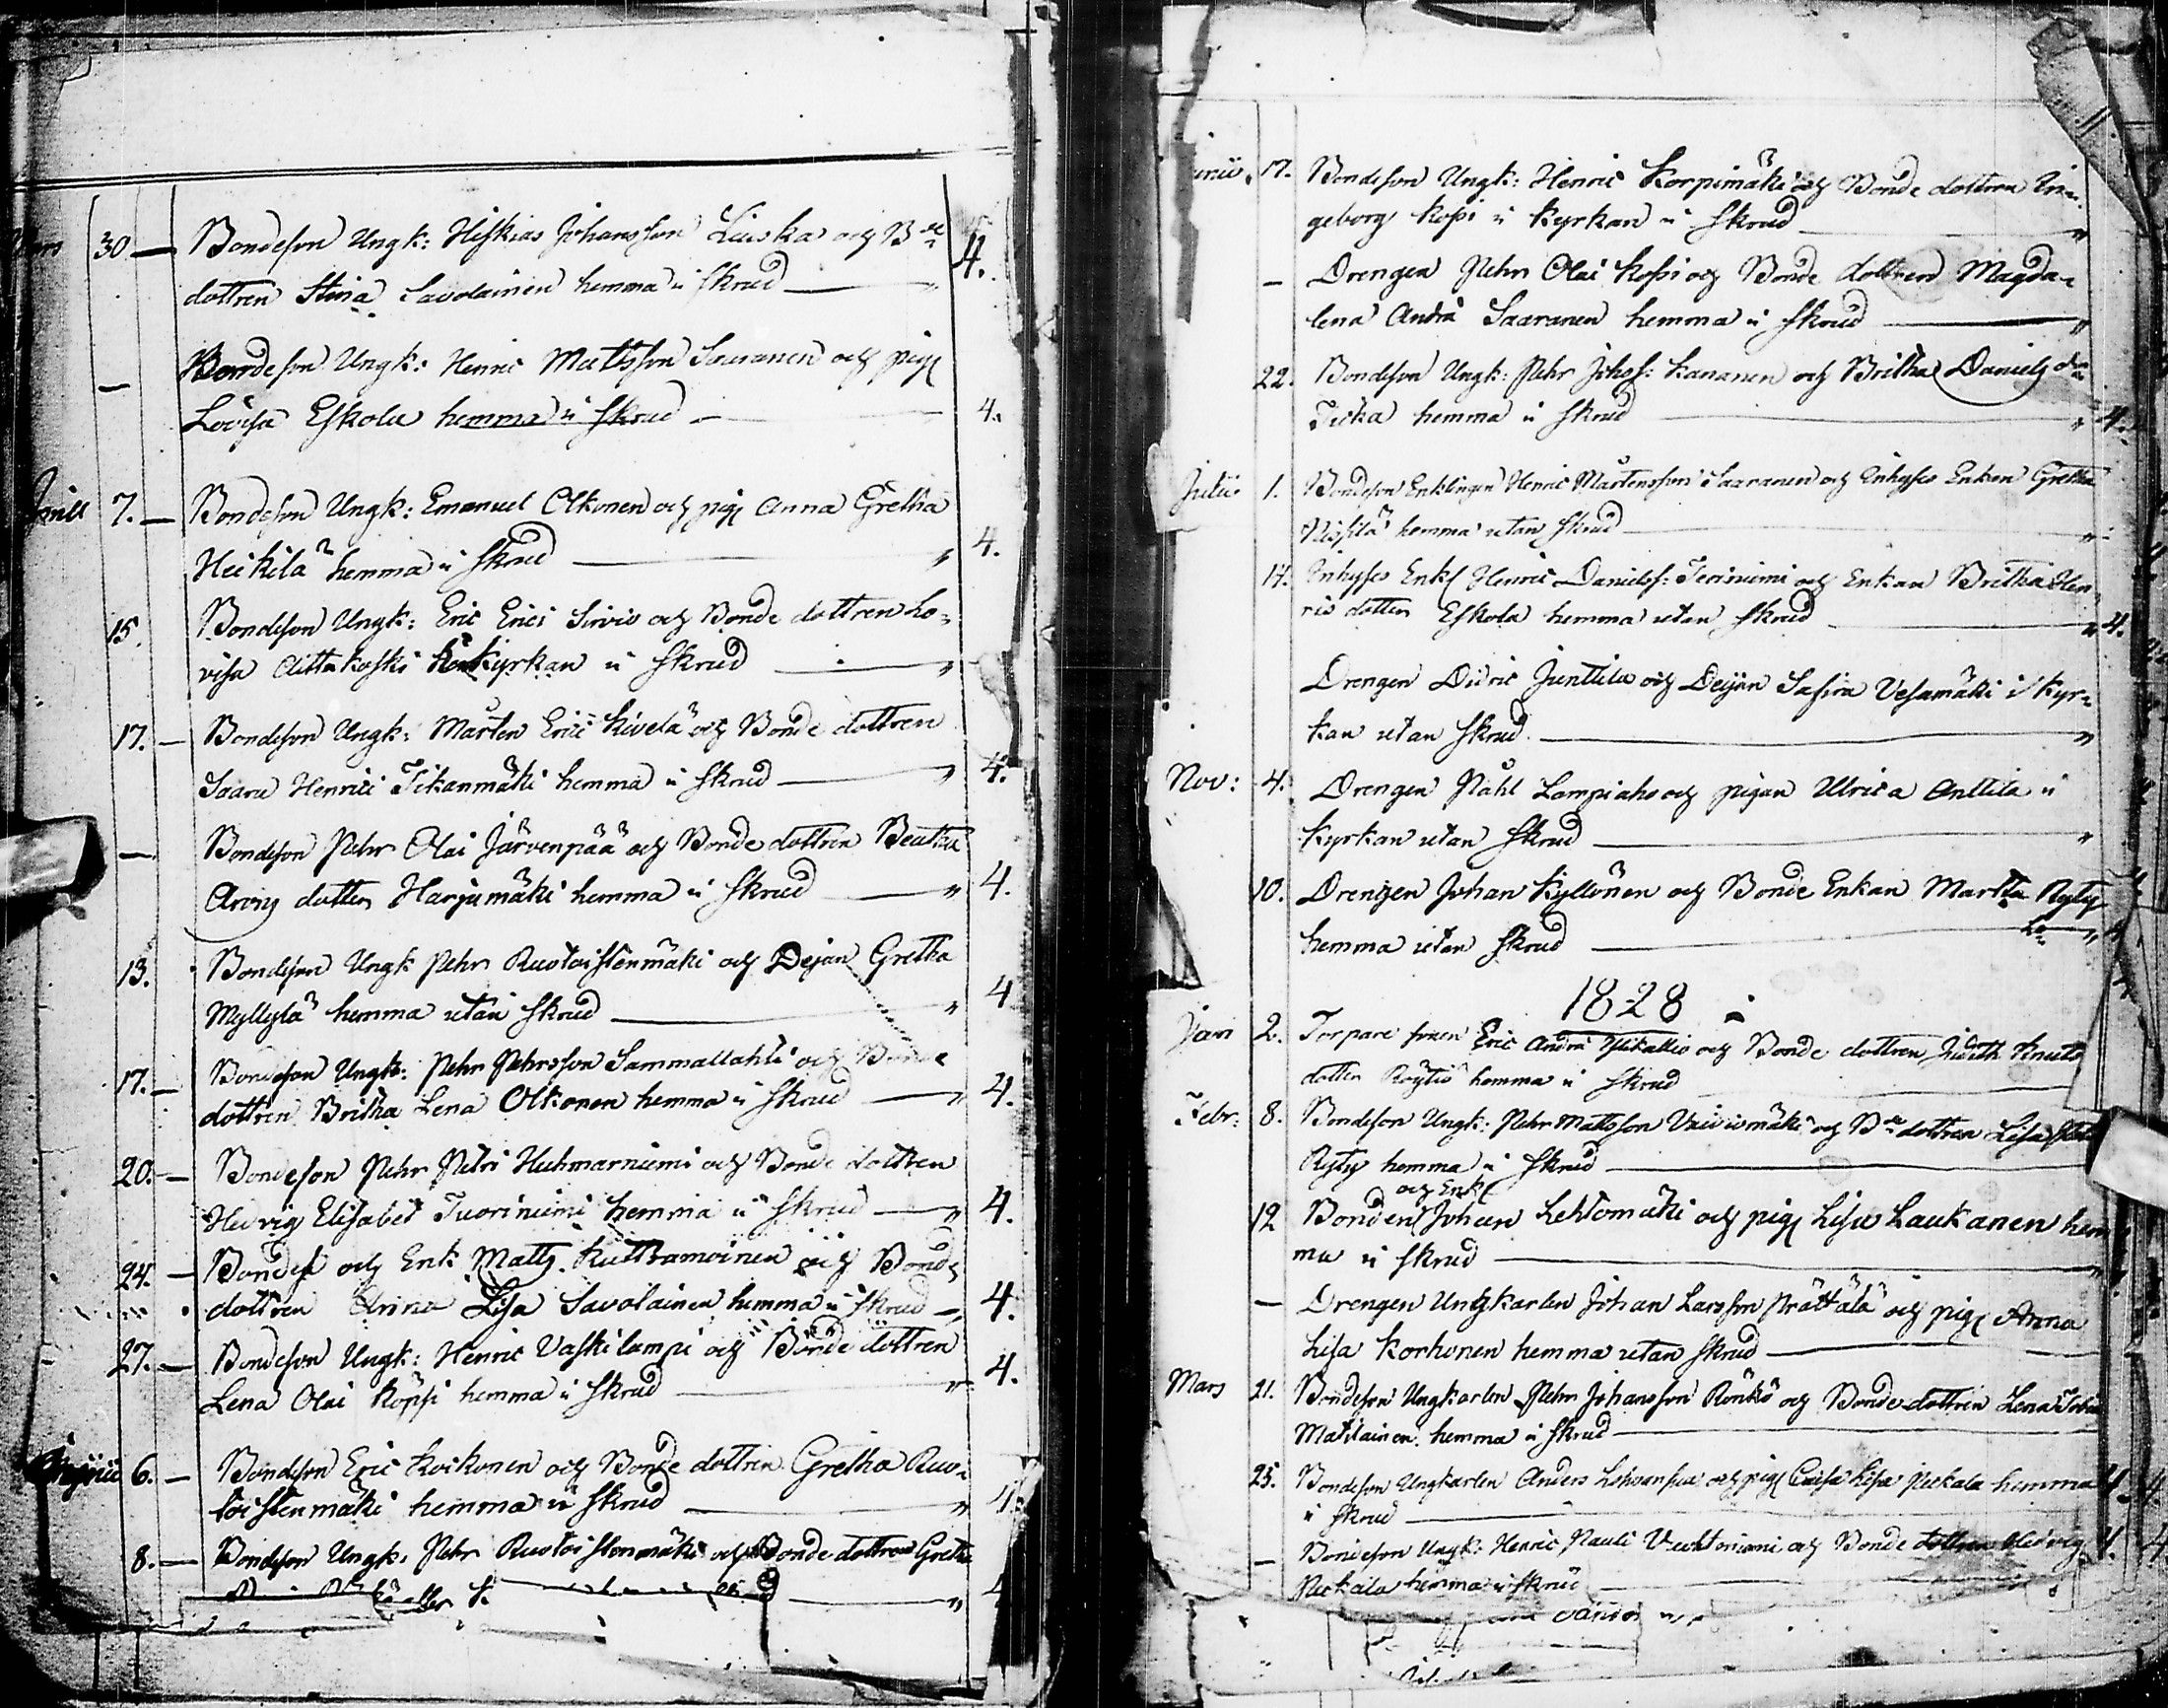 30 — Bondeson Ungk: Hiskias Johansson Liuska och B
dottren Stina Savolainen hemma i skrud — " 4.
— Bondeson Ungk: Henric Matsson Saaranen och pig
Lovisa Eskola hemma i skrud — 4.
7. — Bondeson Ungk: Emanuel Olkonen och pig Anna Gretha
Heikilä hemma i skrud — " 4.
15. Bondeson Ungk: Eric Erici Sirvio och Bonde dottren Lo-
visa Aittakoski Kyrkan i skrud — "
17. — Bondeson Ungk: Mårten Erici Kivelä och Bonde dottren
Saara Henrici Tikanmäki hemma i skrud — " 4.
— Bondeson Pehr Olai Järvenpää och Bonde dottren Beatha
Arvig dotter Harjumäki hemma i skrud — " 4.
13. Bondeson Ungk Pehr Ruotoistenmäki och Dejan Gretha
Myllylä hemma utan skrud — " 4
17. — Bondeson Ungk: Pehr Pehrsson Sammallahti och Bonde
dottren Britha Lena Olkonen hemma i skrud — " 4.
20. — Bondeson Pehr Petri Huhmarniemi och Bonde dottren
Hedvig Elisabet Tuoriniemi hemma i skrud — " 4.
24. — Bonden och Enk Matts Kuttramoinen och Bond
dottren Anna Lisa Savolainen hemma i skrud — 4.
27. — Bondeson Ungk: Henric Vaskilampi och Bonde dottren
Lena Olai Kopsi hemma i skrud — " 4.
6. — Bondeson Eric Koikonen och Bonde dottren Gretha Ruo-
toistenmäki hemma i skrud — " 4.
8. — Bondeson Ungk. Pehr Ruotoistenmäki och Bonde dottren Gretha
17. Bondeson Ungk: Henric Korpimäki och Bonde dottren In-
geborg Kopsi i Kyrkan i skrud — "
— Drengen Pehr Olai Kopsi och Bonde dottren Magda-
lena Andrä Saaranen hemma i skrud — "
22. Bondeson Ungk: Pehr Johss: Kananen och Britha Daniels
hemma i skrud — " 4.
Julii 1. Bondeson Enklingen Henric Mårtensson Saaranen och Inhyses Enkan Gretha
hemma utan skrud — "
17. Inhyses Enkl Henric Daniels: Teriniemi och Enkan Britha Hen
ris dotter Eskola hemma utan skrud — " 4.
Drengen Didric Junttila och Dejan Safira Vesamäki i Kyr-
kan utan skrud. — "
Nov: 4. Drengen Påhl Lampiaho och pigan Ulrica Anttila i
Kyrkan utan skrud — "
10. Drengen Johan Kyllönen och Bonde Enkan Martha Ryty
hemma utan skrud — "
1828
Jan 2. Torpare sonen Eric Andrä Ylikallio och Bonde dottren Judith Knuts
dotter Röytiö hemma i skrud
Febr: 8. Bondeson Ungk: Pehr Mattsson och B dottren Lisa
Ryty hemma i skrud —
och Enkl
12 Bonden Johan Lehtomäki och pig Lisa Laukanen hem
ma i skrud — "
— Drengen Ungkarlen Johan Larsson Prättälä och pig Anna
Lisa Korhonen hemma utan skrud —
Mars 21. Bondeson Ungkarlen Pehr Johansson Rönkö och Bonde dottren Lena
Matilainen hemma i skrud —
25. Bondeson Ungkarlen Anders och pig Caisa Lisa Peckala hemma 4.
i skrud —
— Bondeson Ungk: Henric Pauli och Bonde dottren Hedvig 4.
Peckala hemma i skrud —